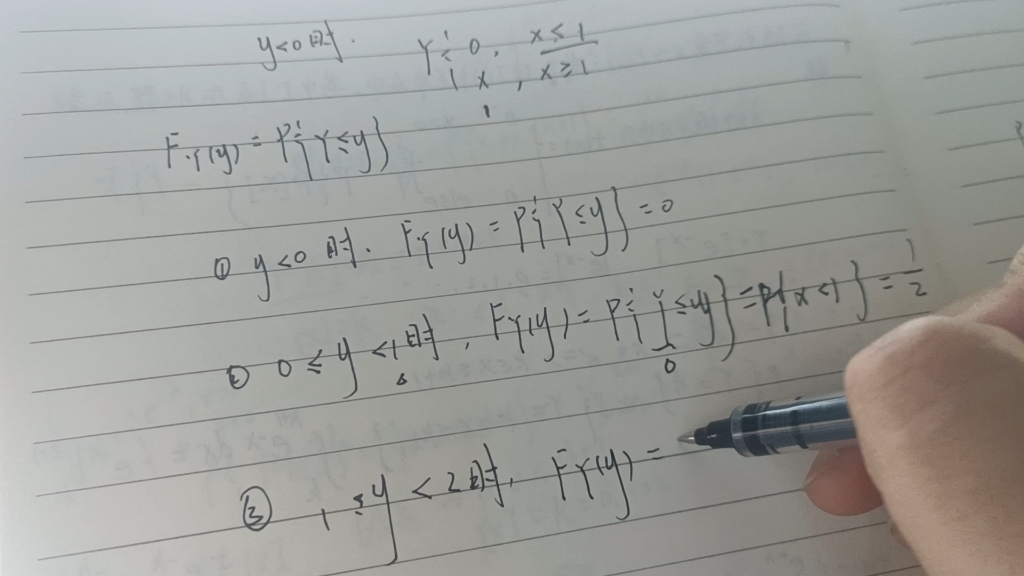 y<0时. Y { 0, x≤1
1 x , x≥1
1
F_Y(y) = P{Y≤y}
① y<0时. F_Y(y) = P{Y≤y} = 0
② 0≤y<1时, F_Y(y) = P{Y≤y} = P{x<1} = 1/2
0
③ 1≤y<2时, F_Y(y) =